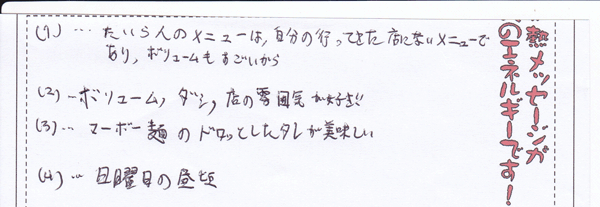 (1)… たいらんのメニューは、自分の行ってきた店にないメニューで
あり、ボリュームもすごいから
(2)…ボリューム, ダシ, 店の雰囲気が好き!!
(3)… マーボー麺のドロッとしたタレが美味しい
(4)… 日曜日の昼
熱メッセージが
のエネルギーです!